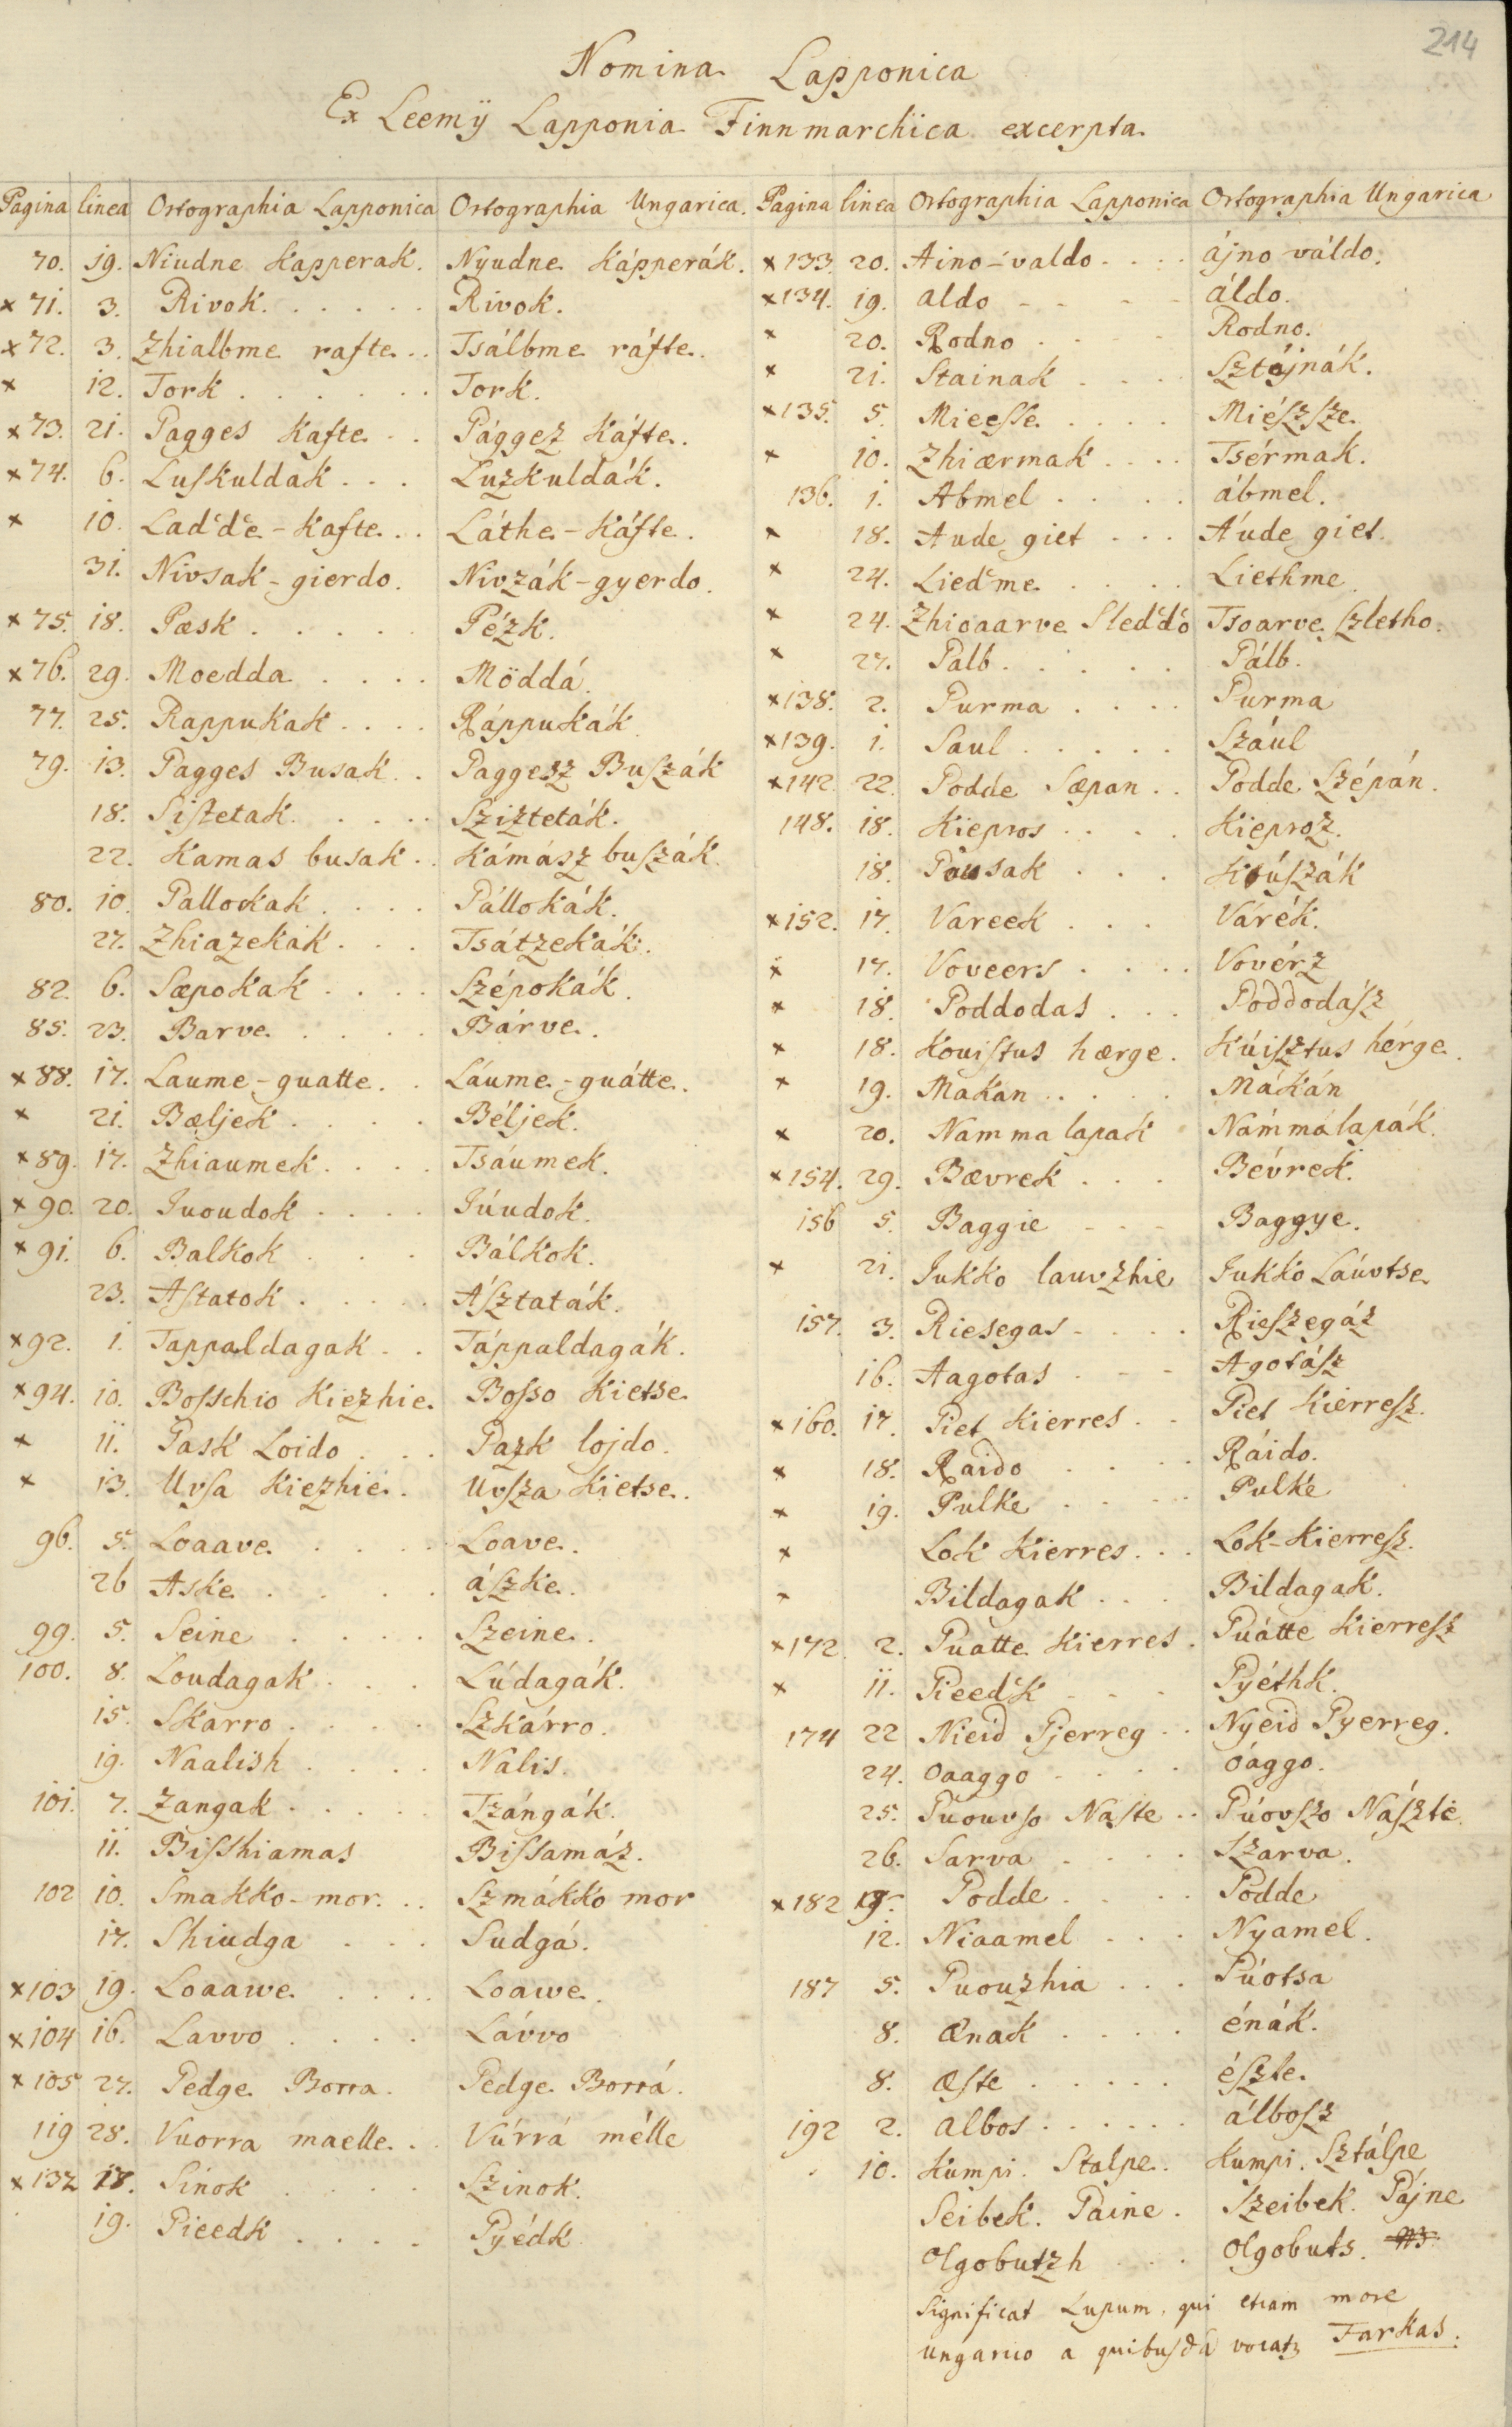 214
Nomina Lapponica
Ex Leemÿ Lapponia Finnmarchica excerpta
Pagina linea Ortographia Lapponica Ortographia Ungarica.
70. 19. Niudne Kapperak. Nyudne Kápperák.
× 71. 3. Rivok. . . . . . Rivok.
× 72. 3. Zhialbme rafte . . Tsálbme ráfte.
× 12. Tork . . . . . . Tork.
× 73. 21. Pagges Kafte . . Pággez Káfte.
× 74. 6. Luskuldak . . . Luzkuldák.
× 10. Lad'd'e - Kafte . . Láthe - Káfte.
31. Nivsak - gierdo. Nivzák - gyerdo.
× 75. 18. Pæsk . . . . . Pézk.
× 76. 29. Moedda . . . . Möddá.
77. 25. Rappukak . . . . Ráppukák.
79. 13. Pagges Busak . . Paggesz Buszák
18. Sistetak . . . . Szizteták.
22. Kamas busak . . Kámász buszák.
80. 10. Pallokak . . . . Pállokák.
27. Zhiazekak . . . Tsátzekák.
82. 6. Sæpokak . . . . Szépokák.
85. 23. Barve . . . . Bárve.
× 88. 17. Laume - guatte . . Láume - guátte.
× 21. Bæljek . . . . Béljek.
× 89. 17. Zhiaumek . . . . Tsáumek.
× 90. 20. Juoudok . . . . Júudok.
× 91. 6. Balkok . . . Bálkok.
23. Astatok . . . . Ásztaták.
× 92. 1. Tappaldagak . . Táppaldagák.
× 94. 10. Bosschio Kiezhie. Bosso Kietse
× 11. Pask Loido . . . Pazk lojdo.
× 13. Uvsa Kiezhie . Uvsza Kietse.
96. 5. Loaave . . . . Loave.
26 Aske . . . . ászke.
99. 5. Seine . . . . Szeine.
100. 8. Loudagak . . . Lúdagák.
15. Skarro . . . . Szkárro.
19. Naalish . . . . Nális.
101. 7. Zangak . . . . . Tzángák.
11. Bisshiamas Bissamáz.
102 10. Smakko - mor. . . Szmákko mor
17. Shiudga . . . Sudgá.
× 103 19. Loaawe . . . . Loawe.
× 104 16. Lavvo . . . . Lávvo
× 105 27. Pedge Borra. Pedge Borrá.
119 28. Vuorra maelle . . Vúrrá mélle
× 132 18. Sinok . . . . Szinok.
19. Pieedk . . . . Pyédk
Pagina linea Ortographia Lapponica Ortographia Ungarica
× 133. 20. Aino - valdo . . . . ájno váldo.
× 134. 19. aldo - - - - áldo.
× 20. Rodno . . . Rodno.
× 21. Stainak . . . . Sztájnák.
× 135. 5. Mieesse . . . . Miészsze.
× 10. Zhiærmak . . . . Tsérmak.
136. 1. Abmel . . . . ábmel.
× 18. Aude giet . . . Áude giet.
× 24. Lied'me . . . . Liethme
× 24. Zhioaarve Sled'do Tsoarve szletho.
× 27. Palb . . . . . Pálb.
× 138. 2. Purma . . . . Purma
× 139. 1. Saul . . . . . Szául
× 142. 22. Podde Sæpan . . Podde Szépán.
148. 18. Kiepros . . . . Kieproz.
18. Pousak . . . Kúszák
× 152. 17. Vareek . . . Várék.
× 17. Voveers . . . . Vovérz
× 18. Poddodas . . . Poddodász
× 18. Kouistus hærge . Kúisztus hérge.
× 19. Makan . . . . . Mákán
× 20. Namma lapak Námmá lapák.
× 154. 29. Bævrek . . . Bévrek.
156 5. Baggie - - - Baggye.
× 21. Jukko lauvzhie Jukko Láuvtse
157. 3. Riesegas . . . . Rieszegász
16. Aagotas . . . Agotász
× 160. 17. Piet Kierres . . Piet Kierresz.
× 18. Raido . . . . Ráido.
× 19. Pulke . . . . Pulke
× Lok Kierres . . . Lok-Kierresz.
× Bildagak . . . Bildagak.
× 172. 2. Puatte Kierres . Puátte Kierresz
× 11. Pieed'k - - - Pyéthk.
174 22 Nieid Pjerreg . . Nyeid Pyerreg.
24. Oaaggo . . . . óaggo.
25. Puouvso Naste . . Púovszo Nászté.
26. Sarva . . . . Szarva.
× 182 19. Podde . . . . Podde
12. Niaamel . . . Nyamel.
187 5. Puouzhia . . . Púotsa
8. Ænak . . . . énák.
8. Æste . . . . . észte.
192 2. albos . . . . . . álbosz
10. Kumpi. Stalpe. Kumpi. Sztálpe
Seibek. Paine. Szeibek. Pájne
Olgobutzh . . . Olgobuts.
Significat Lupum, qui etiam more
ungarico a quibusdā vocat~ Farkas.